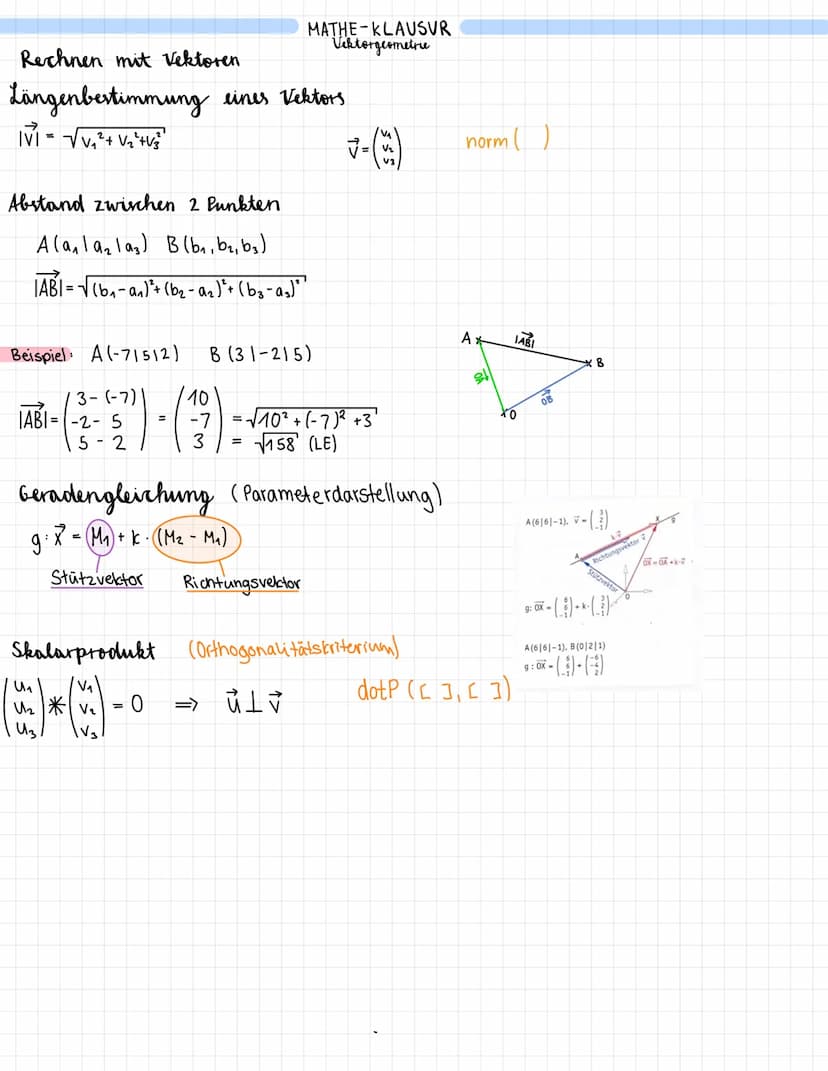 MATHE-KLAUSUR
Vektorgeometrie
Rechnen mit Vektoren
Längenbestimmung eines Vektors
|v⃗| = √(v₁² + v₂² + v₃²)   v⃗ = (v₁ v₂ v₃)   norm( )
Abstand zwischen 2 Punkten
A(a₁|a₂|a₃)  B(b₁,b₂,b₃)
|AB⃗| = √((b₁-a₁)² + (b₂-a₂)² + (b₃-a₃)²)
Beispiel: A(-7|5|2)  B(3|-2|5)
A |AB⃗| B
OB⃗
O
|AB⃗| = (3-(-7) -2-5 5-2) = (10 -7 3) = √(10² + (-7)² + 3)
= √158 (LE)
Geradengleichung (Parameterdarstellung)
g: x⃗ = M₁ + k · (M₂ - M₁)
Stützvektor  Richtungsvektor
A(6|6|-1), v⃗ = (3 2 -1)
k·v⃗ X g
A Richtungsvektor v⃗
Stützvektor OX⃗ = OA⃗ + k·v⃗
O
g: OX⃗ = (6 6 -1) + k · (3 2 -1)
A(6|6|-1), B(0|2|1)
g: OX⃗ = (6 6 -1) + (-6 -4 2)
Skalarprodukt (Orthogonalitätskriterium)
(u₁ u₂ u₃) * (v₁ v₂ v₃) = 0 ⇒ u⃗ ⊥ v⃗   dotP([ ], [ ])